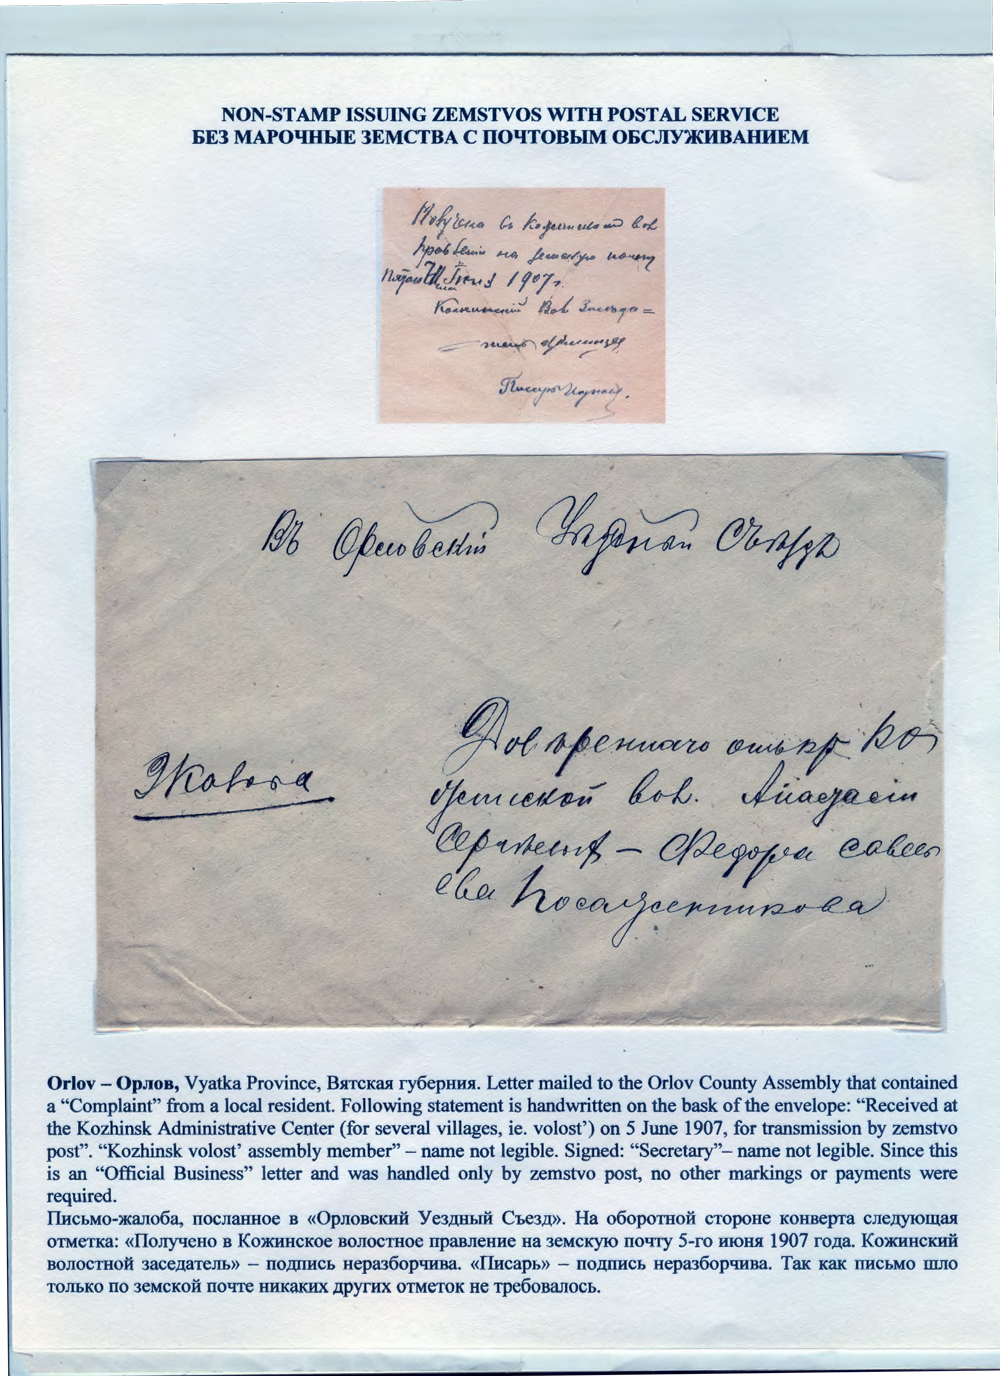 NON-STAMP ISSUING ZEMSTVOS WITH POSTAL SERVICE
БЕЗ МАРОЧНЫЕ ЗЕМСТВА С ПОЧТОВЫМ ОБСЛУЖИВАНИЕМ
Получено въ Кожинское вол
правленіе на земскую почту
1907 г.
Кожинскій Вол Заседа=
тель
Писарь
Въ Орловскій Уѣздный Съѣздъ
Жалоба
Довѣреннаго отъ кр Ко
жинской вол.
Федора Савель
ева Посаженникова
Orlov – Орлов, Vyatka Province, Вятская губерния. Letter mailed to the Orlov County Assembly that contained
a “Complaint” from a local resident. Following statement is handwritten on the bask of the envelope: “Received at
the Kozhinsk Administrative Center (for several villages, ie. volost’) on 5 June 1907, for transmission by zemstvo
post”. “Kozhinsk volost’ assembly member” – name not legible. Signed: “Secretary”– name not legible. Since this
is an “Official Business” letter and was handled only by zemstvo post, no other markings or payments were
required.
Письмо-жалоба, посланное в «Орловский Уездный Съезд». На оборотной стороне конверта следующая
отметка: «Получено в Кожинское волостное правление на земскую почту 5-го июня 1907 года. Кожинский
волостной заседатель» – подпись неразборчива. «Писарь» – подпись неразборчива. Так как письмо шло
только по земской почте никаких других отметок не требовалось.